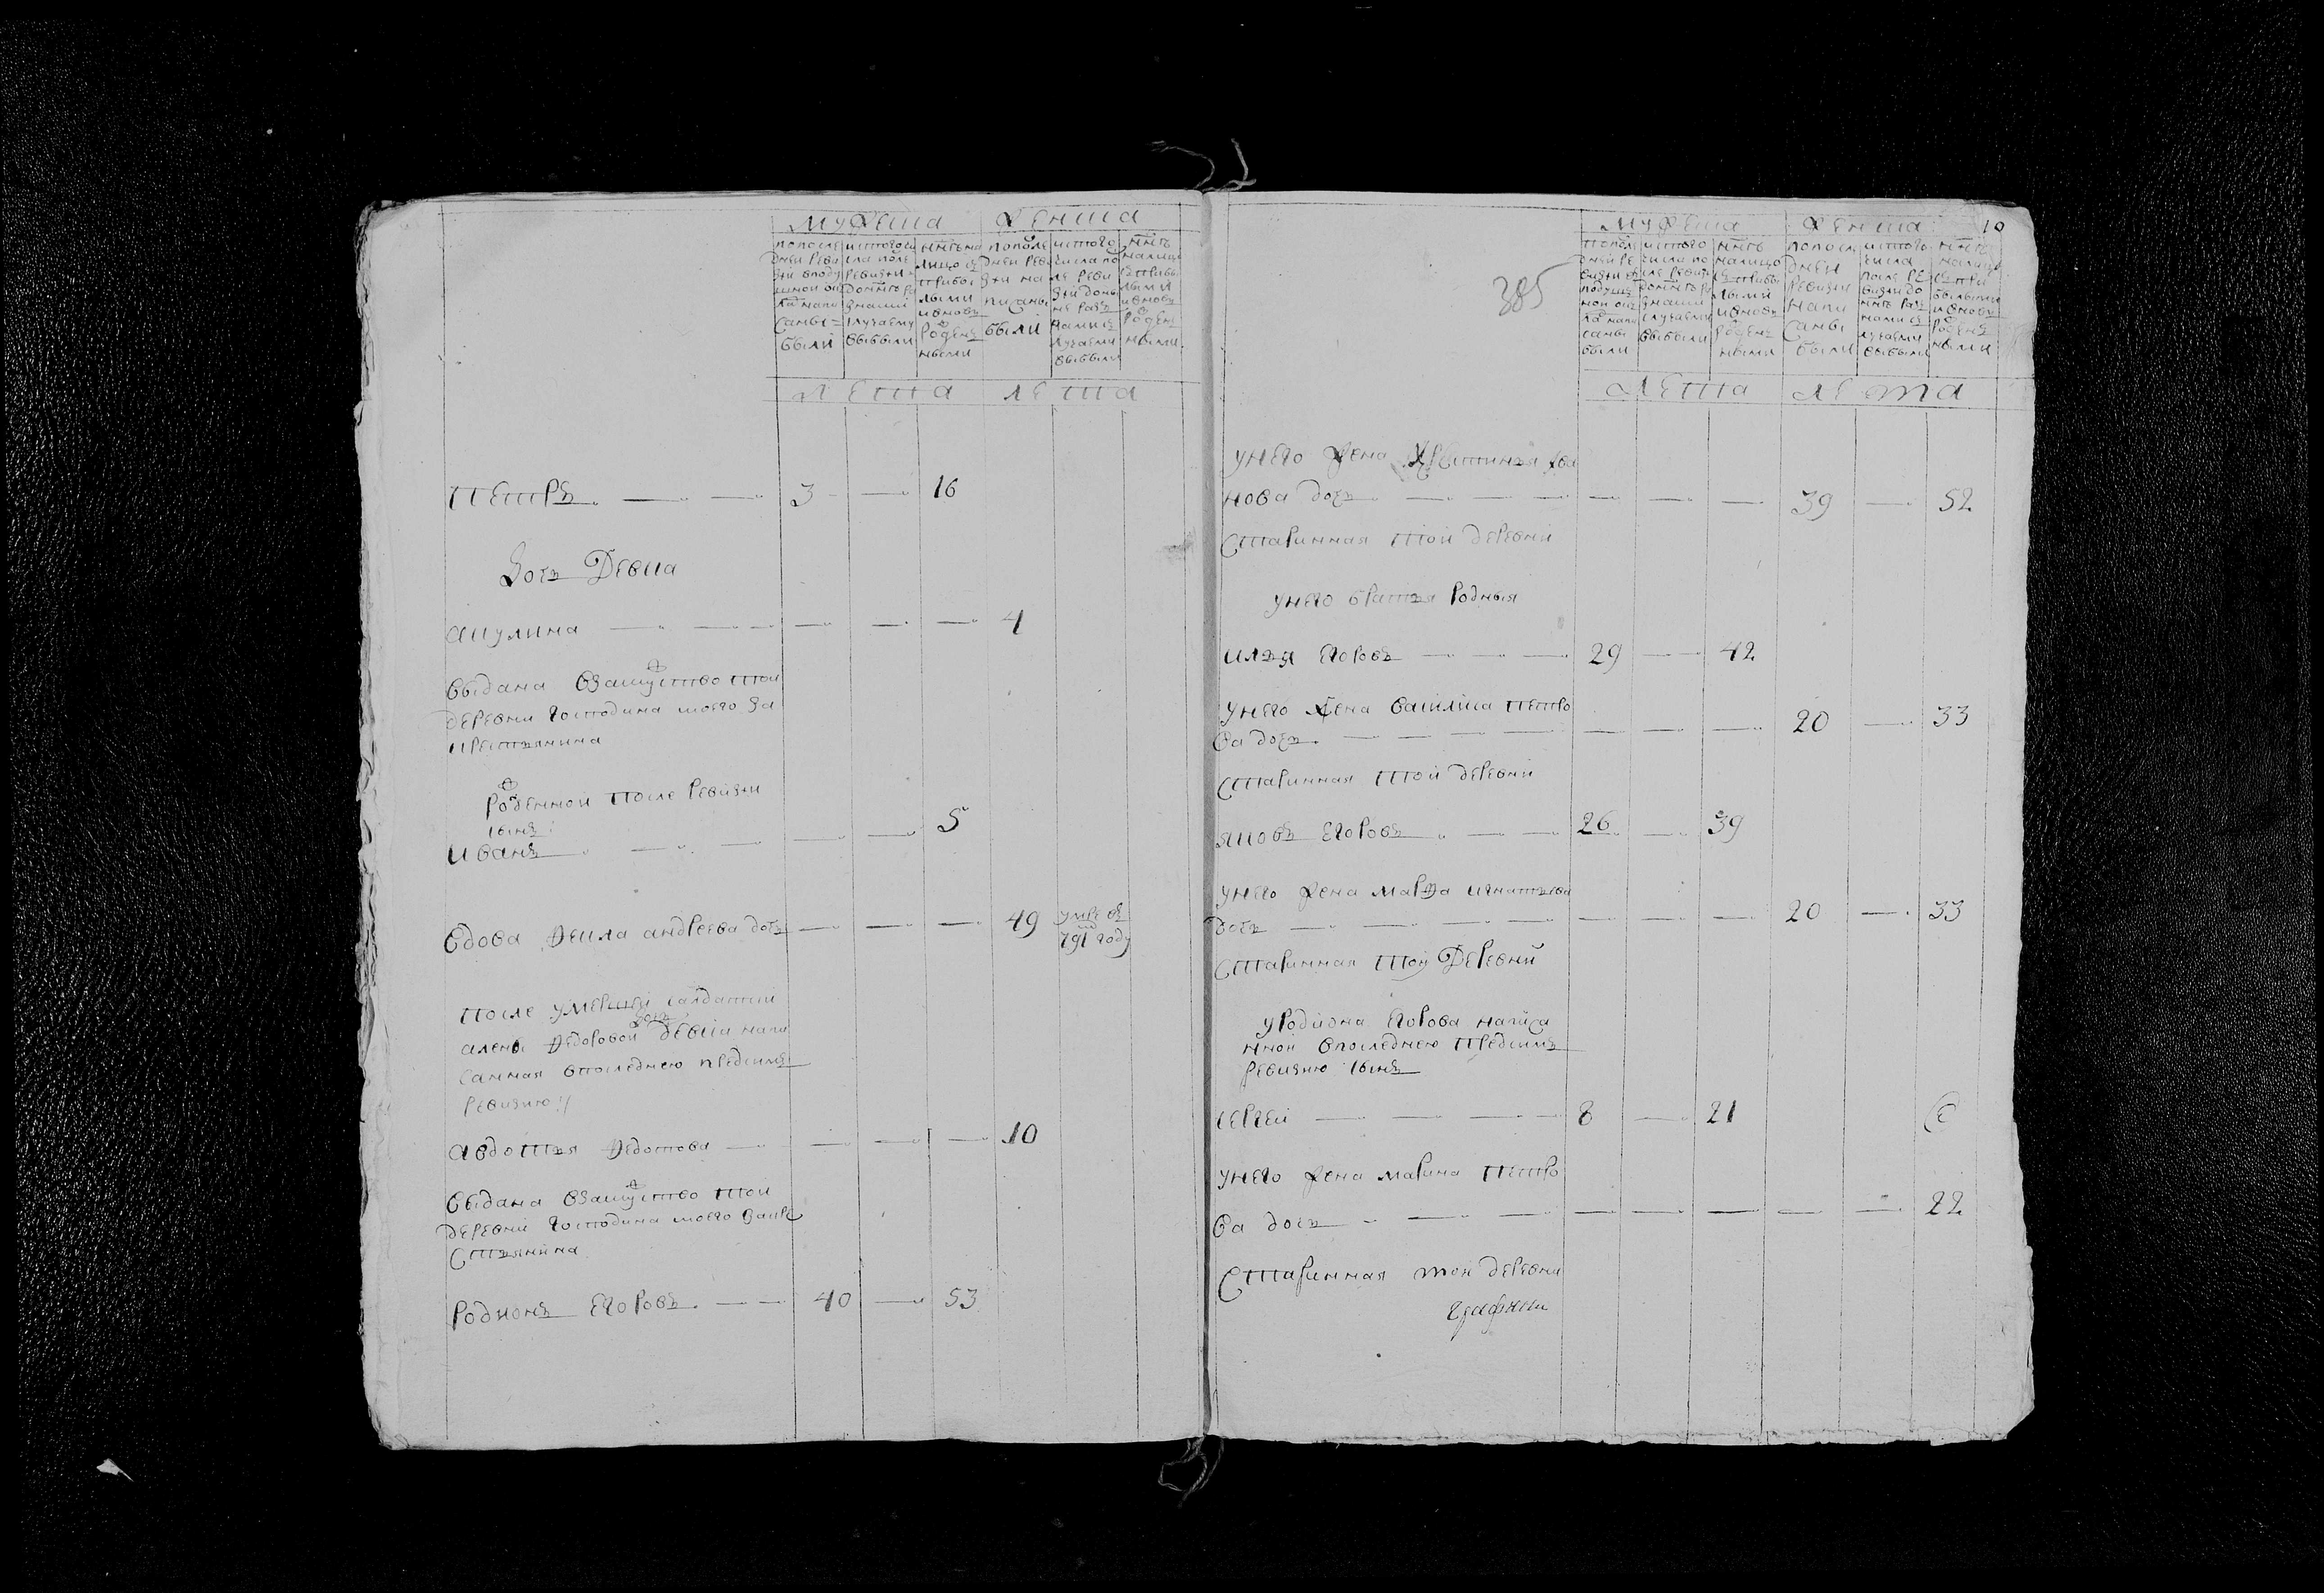 мужеска
женска
пополе
дней реви
зiи вподу
шной ок
ладъ напи
саны
были
истого чи
сла поле
ревизiи
до нынѣ ра
зными
случаеми
выбыли
ннѣ на
лицо съ
прибы
лыми
и вновь
рожден
ными
пополе
дней реви
зiи на
писаны
были
истого
числа по
ле реви
зiи до ны
не раз
ными с
лучаеми
выбыли
ннѣ
налицо
съ прибы
лыми
и вновь
рожден
ными
лета
лета
Петръ 3 16
Дочь Девка
акулина 4
выдана взамужство той
деревни господина моего за
крестьянина
рожденной после ревизiи
сынъ
иванъ 5
вдова Фекла андреева дочь 49 умре въ
791 году
после умершей салдатки
алены Федоровой дочь девка напи
санная впоследнею предсимъ
ревизию
авдотья Федотова 10
выдана взамужство той
деревни господина моего закре
стьянина
Родионъ Егоровъ 40 53
385
10
мужеска
женска
пополе
дней ре
визiи в
подуш
ной ок
ладъ напи
саны
были
истого
числа по
ле ревизiи
до нынѣ ра
зными
случаеми
выбыли
ннѣ
налицо
съ прибы
лыми
и вновь
рожден
ными
попосле
дней
ревизiи
напи
саны
были
истого
числа
после ре
визiи до
нынѣ раз
ными с
лучаеми
выбыли
ннѣ
налицо
съ при
былыми
и вновь
рожден
ными
лета
лета
унего жена Христинья ива
нова дочь 39 52
старинная той деревни
унего братья родныя
илья Егоровъ 29 42
унего жена василиса петро
ва дочь 20 33
старинная той деревни
яковъ Егоровъ 26 39
унего жена марфа игнатьева
дочь 20 33
старинная той Деревни
уродиона Егорова написа
нной впоследнею предсимъ
ревизию сынъ
сергей 8 21
унего жена марина петро
ва дочь 22
старинная той деревни
графини